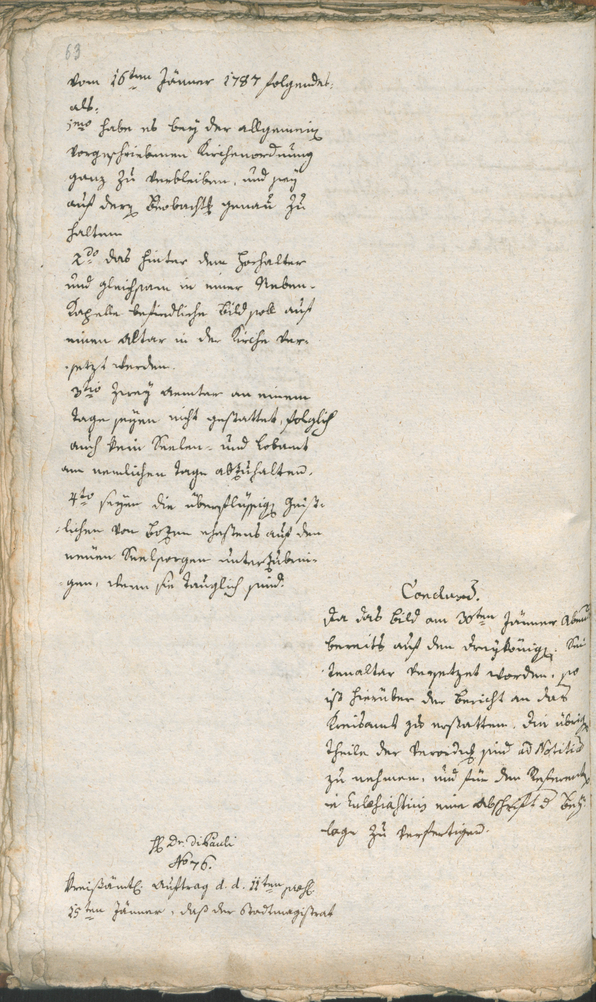 63
vom 16ten Jänner 1787 folgendes
als.
1mo habe es bey der allgemein
vorgeschriebenen Kirchenordnung
ganz zu verbleiben, und sey
auf derg Beobachtg genau zu
halten
2do das hinter dem Hochaltar
und gleichsam in einer Neben-
Kapelle befindliche Bild soll auf
einen Altar in der Kirche ver-
setzt werden.
3tio Zwey Aemter an einem
Tage seyen nicht gestattet, folglich
auch kein Seelen- und Lobamt
am nemlichen Tage abzuhalten.
4to seyen die überflüssige Geist-
lichen von Bozen ehestens auf den
neuen Seelsorgen unterzubrin-
gen, wenn sie tauglich sind.
Conclusum.
Da das Bild am 30ten Jänner Abend
bereits auf den Dreykönig Sei-
tenaltar versetzet worden, so
ist hierüber der Bericht an das
Kreisamt zu erstatten. Die übrig
Theile der Verordng sind ad Notitiam
zu nehmen, und für den Referenten
in Ecclesiasticis eine Abschrift d Bey-
lage zu verfertigen.
H Dr. Di Pauli
No 76.
Kreisämtl. Auftrag d. d. 11ten
15ten Jänner, daß der Stadtmagistrat